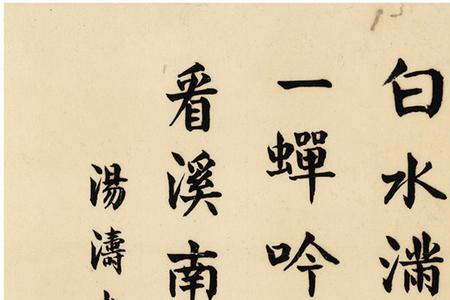 白水滿
一蟬吟
看溪南
湯濤